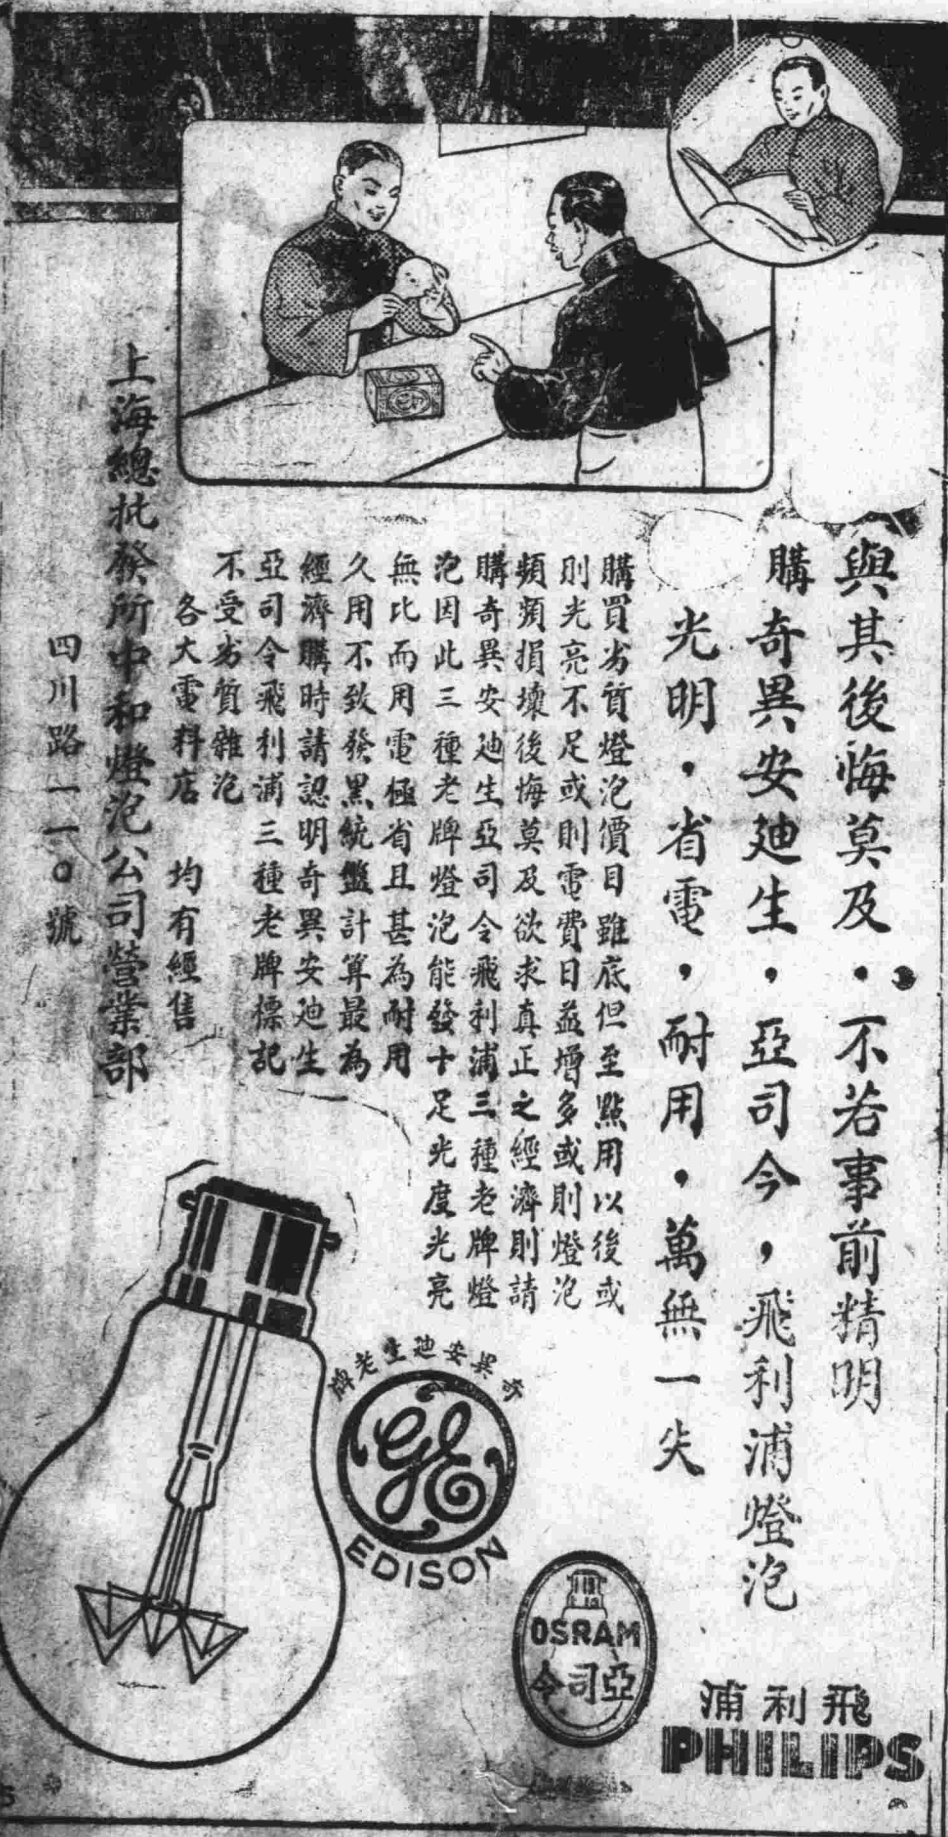 與其後悔莫及・不若事前精明
購奇異安廸生，亞司令，飛利浦燈泡
光明，省電，耐用・萬無一失
購買劣質燈泡價目雖底但至點用以後或
則光亮不足或則電費日益增多或則燈泡
頻頻損壞後悔莫及欲求真正之經濟則請
購奇異安廸生亞司令飛利浦三種老牌燈
泡因此三種老牌燈泡能發十足光度光亮
無比而用電極省且甚為耐用
久用不致發黑統盤計算最為
經濟購時請認明奇異安廸生
亞司令飛利浦三種老牌標記
不受劣質雜泡
各大電料店 均有經售
上海總批發所中和燈泡公司營業部
四川路一一〇號
奇異安廸生老牌
GE
EDISON
OSRAM
亞司令
飛利浦
PHILIPS